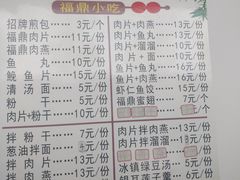 福鼎小吃
招牌煎包……3元/个
福鼎肉片……11元/份
鱼丸……11元/份
鲩鱼片……15元/份
清汤面……5元/份
粉干……5元/份
肉片+粉干……10元/份
拌粉干……7元/份
葱油拌面……元/份
拌肉片……13元/份
拌肉燕……13元/份
肉片+肉燕……13元/份
肉片+鱼丸……13元/份
肉片+溜溜……10元/份
肉片+面……10元/份
鱼片+鱼丸……15元/份
鱼片+肉燕……16元/份
虾仁鱼饺……15元/份
福鼎蜜翅……7元/个
肉片拌肉燕……15元/份
肉片拌溜溜……13元/份
冰镇绿豆汤……5元/份
银耳莲子羹……6元/份